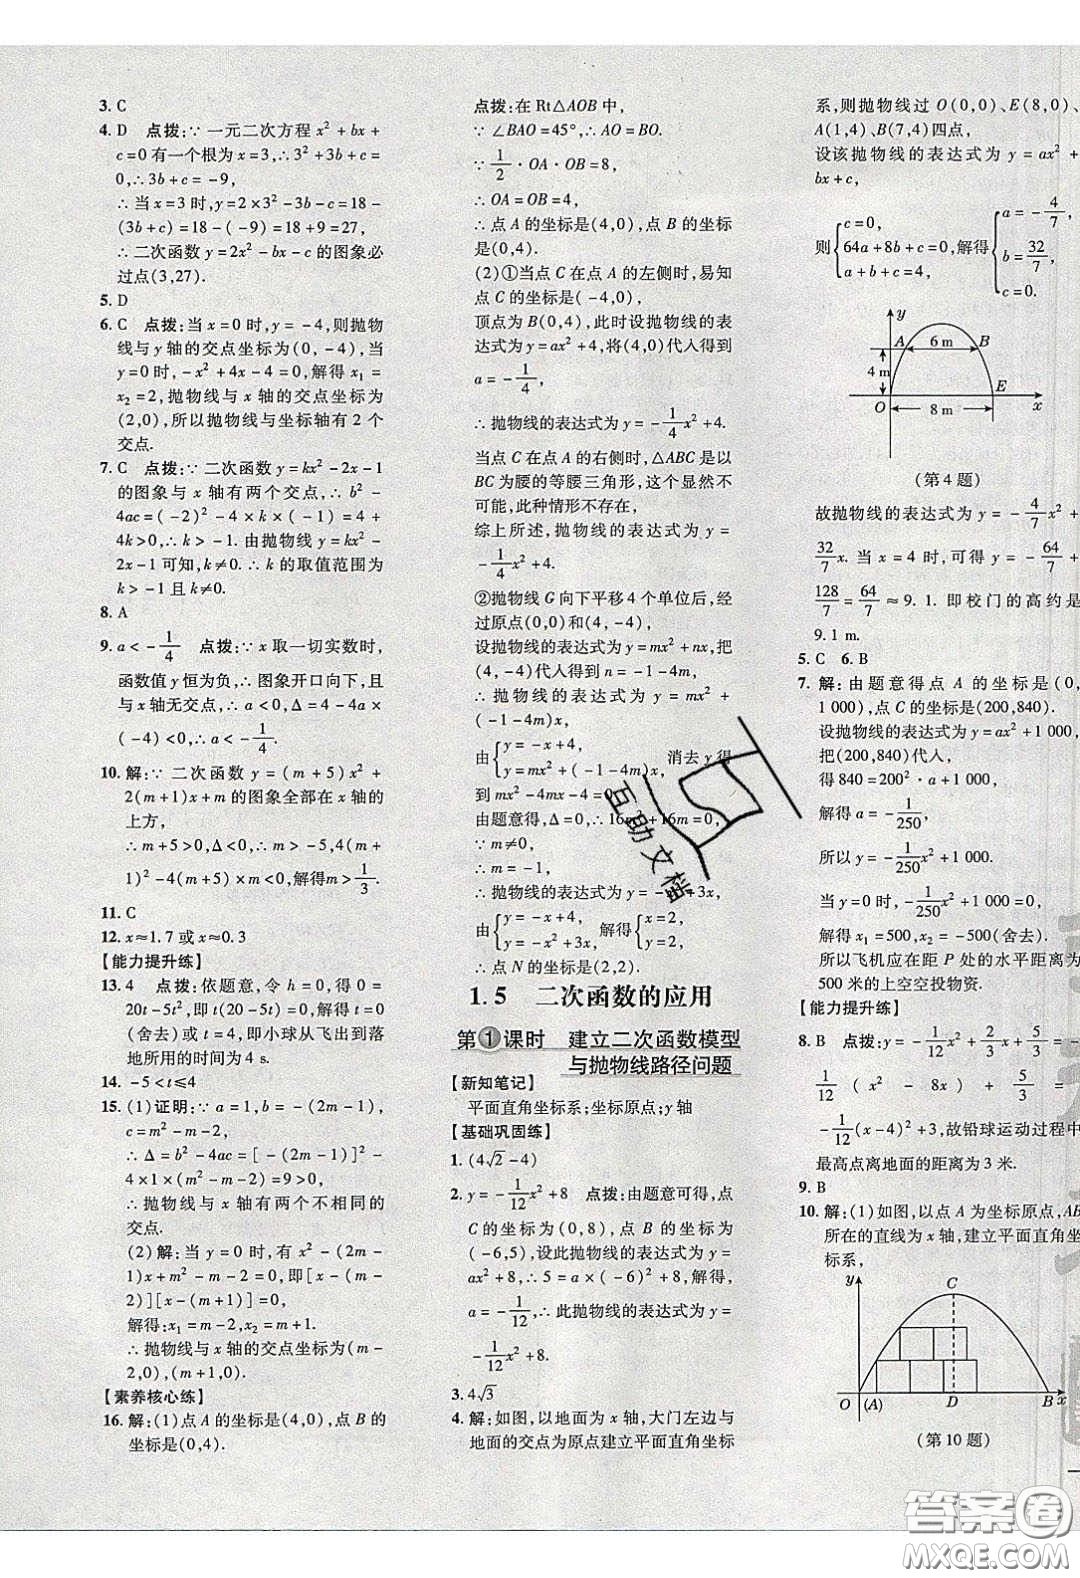 3. C
4. D 点拨:∵一元二次方程 x²+bx+
c=0有一个根为x=3,∴3²+3b+c=
0,∴3b+c=-9,
∴当x=3时,y=2×3²-3b-c=18-
(3b+c)=18-(-9)=18+9=27,
∴二次函数y=2x²-bx-c的图象必
过点(3,27).
5. D
6. C 点拨:当x=0时,y=-4,则抛物
线与y轴的交点坐标为(0,-4),当
y=0时,-x²+4x-4=0,解得x₁=
x₂=2,抛物线与x轴的交点坐标为
(2,0),所以抛物线与坐标轴有2个
交点.
7. C 点拨:∵二次函数y=kx²-2x-1
的图象与x轴有两个交点,∴b²-
4ac=(-2)²-4×k×(-1)=4+
4k>0,∴k>-1.由抛物线y=kx²-
2x-1可知,k≠0.∴k的取值范围为
k>-1且k≠0.
8. A
9. a<-1/4 点拨:∵x取一切实数时,
函数值y恒为负,∴图象开口向下,且
与x轴无交点,∴a<0,Δ=4-4a×
(-4)<0,∴a<-1/4.
10. 解:∵二次函数y=(m+5)x²+
2(m+1)x+m的图象全部在x轴的
上方,
∴m+5>0,Δ<0,∴m>-5,4(m+
1)²-4(m+5)×m<0,解得m>1/3.
11. C
12. x≈1.7或x≈0.3
【能力提升练】
13. 4 点拨:依题意,令h=0,得0=
20t-5t²,得t(20-5t)=0,解得t=0
(舍去)或t=4,即小球从飞出到落
地所用的时间为4 s.
14. -5<t≤4
15. (1)证明:∵a=1,b=-(2m-1),
c=m²-m-2,
∴Δ=b²-4ac=[-(2m-1)]²-
4×1×(m²-m-2)=9>0,
∴抛物线与x轴有两个不相同的
交点.
(2)解:当y=0时,x²-(2m-
1)x+m²-m-2=0,即[x-(m-
2)][x-(m+1)]=0,
解得:x₁=m-2,x₂=m+1,
∴抛物线与x轴的交点坐标为(m-
2,0),(m+1,0).
【素养核心练】
16. 解:(1)点A的坐标是(4,0),点B的
坐标是(0,4).
点拨:在Rt△AOB中,
∵∠BAO=45°,∴AO=BO.
∵1/2·OA·OB=8,
∴OA=OB=4,
∴点A的坐标是(4,0),点B的坐标
是(0,4).
(2)①当点C在点A的左侧时,易知
点C的坐标是(-4,0),
顶点为B(0,4),此时设抛物线的表
达式为y=ax²+4,将(4,0)代入得到
a=-1/4,
∴抛物线的表达式为y=-1/4x²+4.
当点C在点A的右侧时,△ABC是以
BC为腰的等腰三角形,这个显然不
可能,此种情形不存在,
综上所述,抛物线的表达式为y=
-1/4x²+4.
②抛物线G向下平移4个单位后,经
过原点(0,0)和(4,-4),
设抛物线的表达式为y=mx²+nx,把
(4,-4)代入得到n=-1-4m,
∴抛物线的表达式为y=mx²+
(-1-4m)x,
由{y=-x+4, y=mx²+(-1-4m)x, 消去y得
到mx²-4mx-4=0,
由题意得,Δ=0,∴16m²+16m=0,
∵m≠0,
∴m=-1,
∴抛物线的表达式为y=-x²+3x,
由{y=-x+4, y=-x²+3x, 解得{x=2, y=2,
∴点N的坐标是(2,2).
1.5 二次函数的应用
第1课时 建立二次函数模型
与抛物线路径问题
【新知笔记】
平面直角坐标系;坐标原点;y轴
【基础巩固练】
1. (4√2-4)
2. y=-1/12x²+8 点拨:由题意可得,点
C的坐标为(0,8),点B的坐标为
(-6,5),设此抛物线的表达式为y=
ax²+8,∴5=a×(-6)²+8,解得,
a=-1/12,∴此抛物线的表达式为y=
-1/12x²+8.
3. 4√3
4. 解:如图,以地面为x轴,大门左边与
地面的交点为原点建立平面直角坐标
系,则抛物线过O(0,0)、E(8,0)、
A(1,4)、B(7,4)四点,
设该抛物线的表达式为y=ax²+
bx+c,
则{c=0, 64a+8b+c=0, a+b+c=4, 解得{a=-4/7, b=32/7, c=0.
y
A 6 m B
4 m
E
O 8 m x
(第4题)
故抛物线的表达式为y=-4/7x²+
32/7x.当x=4时,可得y=-64/7+
128/7=64/7≈9.1.即校门的高约是
9.1 m.
5. C 6. B
7. 解:由题意得点A的坐标是(0,
1 000),点C的坐标是(200,840).
设抛物线的表达式为y=ax²+1 000,
把(200,840)代入,
得840=200²·a+1 000,
解得a=-1/250,
所以y=-1/250x²+1 000.
当y=0时,-1/250x²+1 000=0,
解得x₁=500,x₂=-500(舍去).
所以飞机应在距P处的水平距离
500米的上空空投物资.
【能力提升练】
8. B 点拨:y=-1/12x²+2/3x+5/3=
-1/12(x²-8x)+5/3=
-1/12(x-4)²+3,故铅球运动过程中
最高点离地面的距离为3米.
9. B
10. 解:(1)如图,以点A为坐标原点,AB
所在的直线为x轴,建立平面直角坐
标系,
y C
O (A) D B x
(第10题)
互助文档
答案卷
MXQE.COM